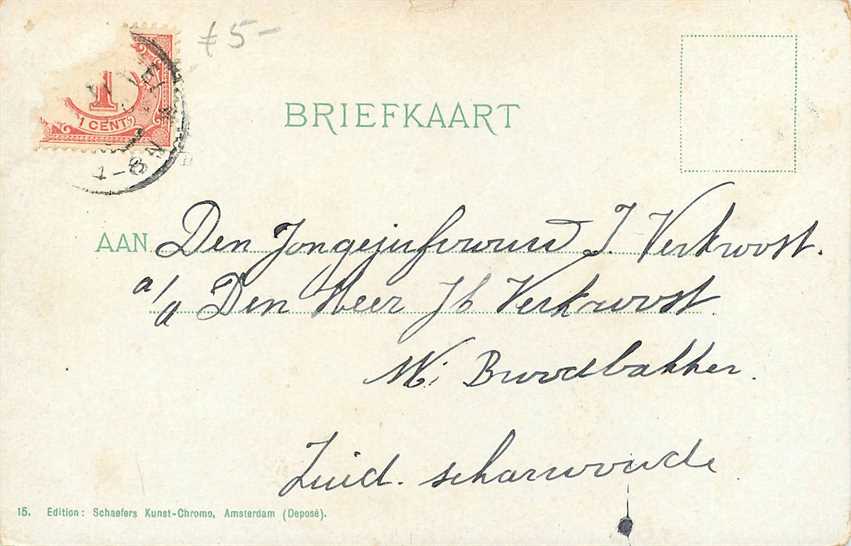 f 5-
1
1 CENT
BRIEFKAART
AAN Den Jongejufvrouw J. Verkroost.
a/a Den Heer Jb Verkroost.
Mr Broodbakker.
Zuid. scharwoude
15. Edition: Schaefers Kunst-Chromo, Amsterdam (Deposé).